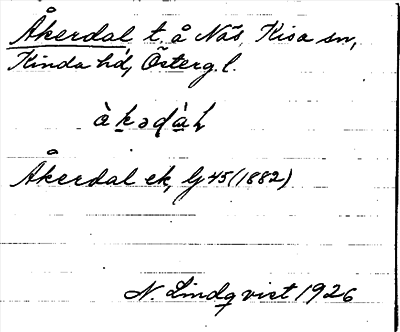 Åkerdal t. å Näs, Kisa sn,
Kinda hd, Österg. l.
Åkerdal ek, Gj 45 (1882)
N. Lindqvist 1926